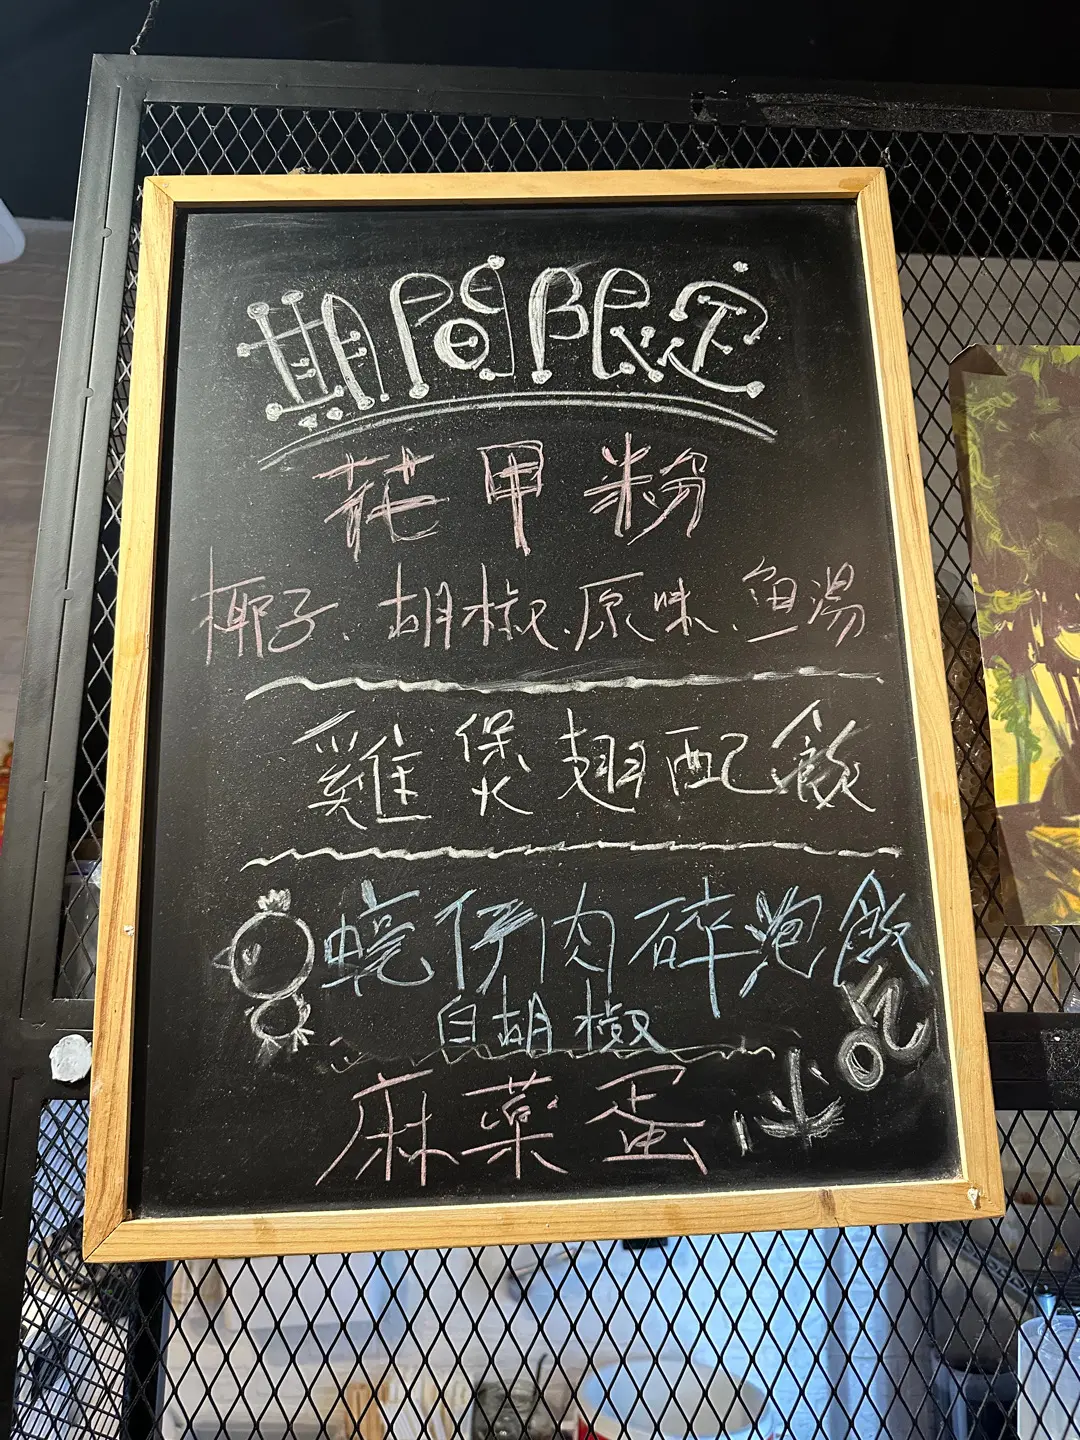 期間限定
花甲粉
椰子、胡椒、原味、魚湯
雞煲翅配飯
蠔仔肉碎泡飯
白胡椒
麻藥蛋
小吃